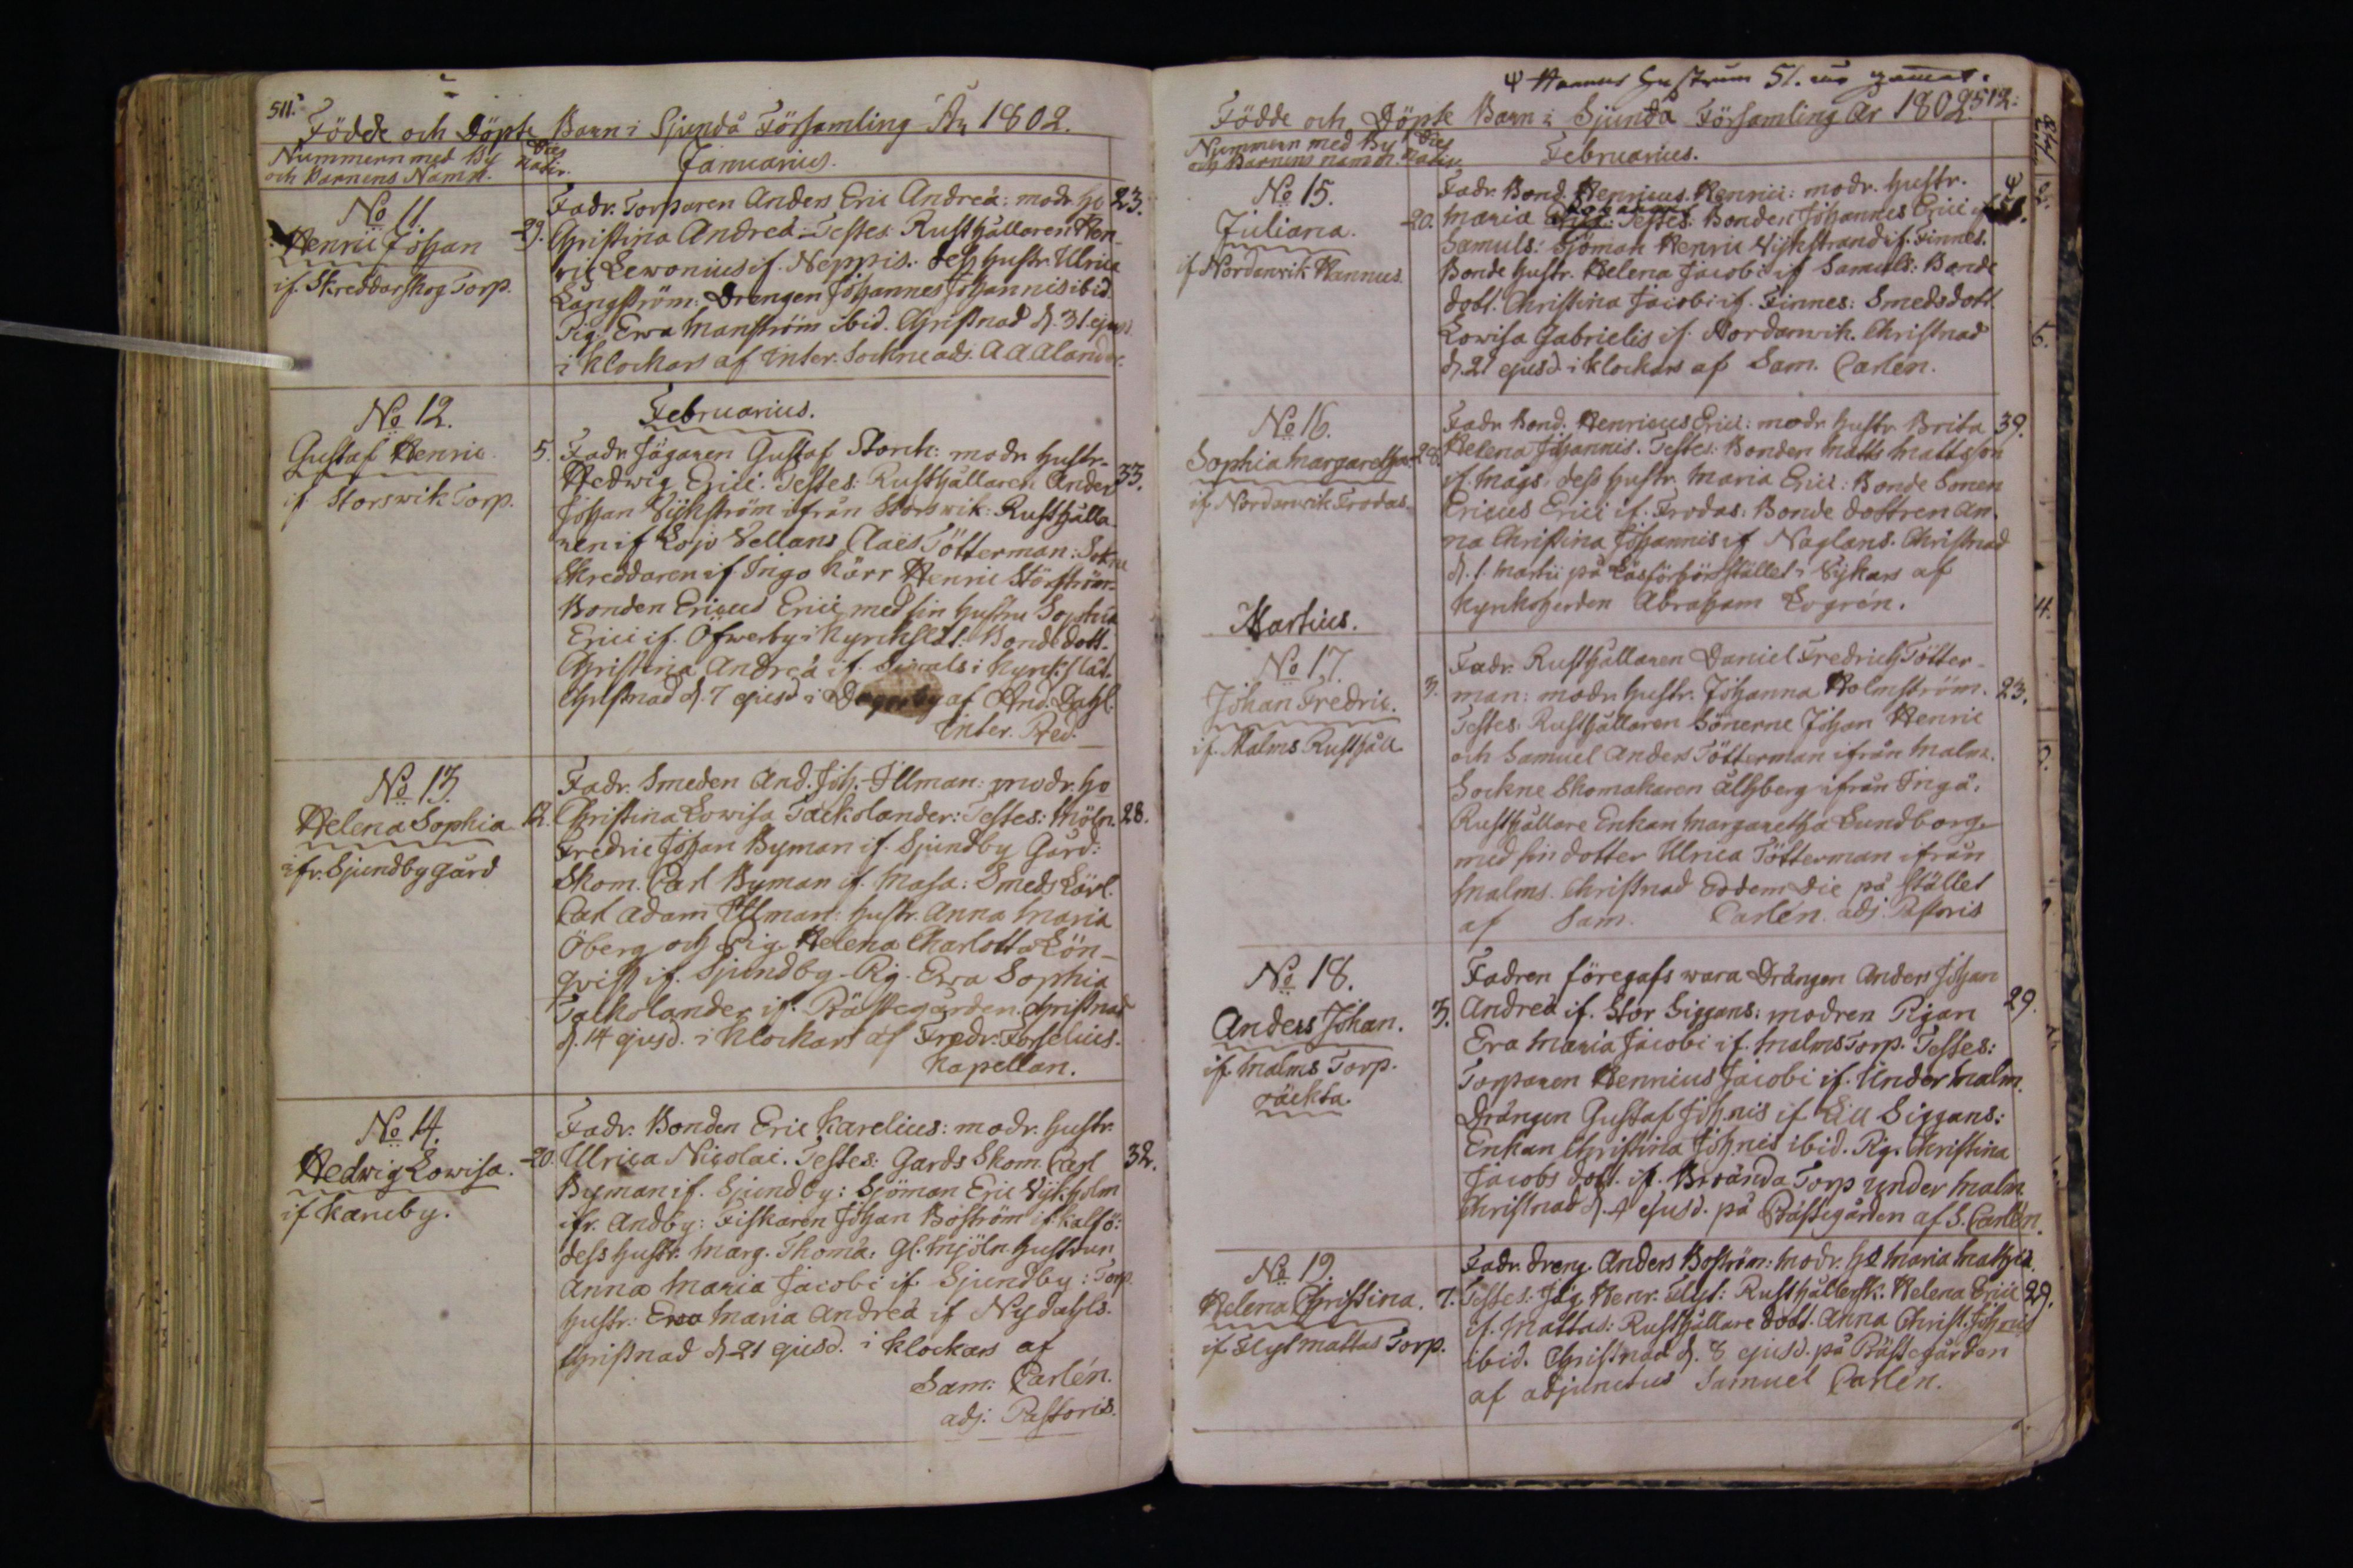 511.
Födde och Döpte Barn i Sjundå Församling År 1802.
Nummern med By
och Barnens Namn.
Dies
Nativ.
Januarius.
No 11.
Henric Johan
if. Skreddarskog Torp.
29.
Fadr. Torparen Anders Eric Andreä: modr. ho 23.
Christina Andreä. Testes Rusthållaren Hen-
ric Lewonius if. Neppis. dess hustr. Ulrica
Långström: Drengen Johannes Johannis ibid.
Pig. Ewa Manström ibid. Christnad d. 31. ejusd.
i Klockars af Inter. Sockne adj. A A Alander.
Februarius.
No 12.
Gustaf Henric
if Storswik Torp.
5.
Fadr. Jägaren Gustaf Storck: modr. hustr.
Hedwig Erici. Testes: Rusthållaren Anders 33.
Johan Wijkström ifrån Storswik: Rusthålla-
ren if Lojo Vellans Claës Tötterman: Sokne
Skreddaren if. Ingo Kärr Henric Störström.
Bonden Ericus Erici med sin hustru Sophia
Erici if. Öfwerby i Kyrckslät: Bonde dott.
Christina Andreä if. Sierals i Kyrkslät.
Christnad d. 7 ejusd i Degerby af And. Dahl.
Inter. Pred.
No 13.
Helena Sophia
ifr. Sjundby gård
12.
Fadr. Smeden And. Joh. Illman: modr. ho
Christina Lowisa Tackolander: Testes: Möln. 28.
Fredric Johan Byman if. Sjundby Gård:
Skom. Carl Byman if. Masa: Smeds Lärl.
Carl Adam Illman: hustr. Anna Maria
Öberg och Pig. Helena Charlotta Lön-
qvist if. Sjundby. Pig. Ewa Sophia
Talkolander if. Prästegården. Christnad
d. 14 ejusd. i Klockars af Fredr. Forselius.
Kapellan.
No 14.
Hedwig Lowisa.
if Karuby.
20.
Fadr. Bonden Eric Karelius: modr. hustr.
Ulrica Nicolai. Testes: Gards Skom. Carl 32.
Byman if. Sjundby: Sjöman Eric Wijkholm
ifr. Andby: Fiskaren Johan Boström if. Kalfö:
dess hustr. Marg. Thomä: Gl. Mjöln. hustrun
Anna Maria Jacobi if. Sjundby: Torp.
hustr. Ewa Maria Andreä if Nydahls.
Christnad d. 21 ejusd. i Klockars af
Sam: Carlén.
adj. Pastoris.
Ψ Hannus hustrun 51. år gammal.
Födde och Döpte Barn i Sjundå Församling År 1802. 512:
Nummern med By
och Barnens namn
Dies
Nativ.
Februarius.
No 15.
Juliana.
if Nordanwik Hannus.
20.
Fadr. Bond. Henricus Henrici: modr. hustr. Ψ
Maria Testes: Bonden Johannes Erici if
Samuls: Sjöman Henric Wijkstrand if. Finnes.
Bonde hustr. Helena Jacobi if Samuls: Bonde
dott. Christina Jacobi if. Finnes: Smedsdott.
Lowisa Gabrielis if. Nordanwik. Christnad
d. 21 ejusd. i Klockars af Sam. Carlén.
No 16.
Sophia Margaretha
if Nordanwik Frodas.
28.
Fadr. Bond. Henricus Erici: modr. hustr. Brita 39.
Helena Johannis. Testes: Bonden Matts Mattsson
if. Mags: dess hustr. Maria Erici: Bonde Sonen
Ericus Erici if. Frodas: Bonde dottren An-
na Christina Johannis if Naglans. Christnad
d. 1. Martii på Läsförhörstället i Wijkars af
Kyrkoherden Abraham Logrén.
Martius.
No 17.
Johan Fredric.
if. Malms Rusthåll
3.
Fadr. Rusthållaren Daniel Fredrich Tötter-
man: modr. hustr. Johanna Holmström. 23.
Testes: Rusthållaren Sönerne Johan Henric
och Samuel Anders Tötterman ifrån Malms.
Sockne Skomakaren Ahlberg ifrån Ingå.
Rusthållare Enkan Margaretha Lundborg
med sin dotter Ulrica Tötterman ifrån
Malms. Christnad Eodem Die på Stället
af Sam. Carlén. adj. Pastoris
No 18.
Anders Johan.
if. Malms Torp.
oäckta.
3.
Fadren föregafs wara Drängen Anders Johan
Andreä if. Stor Siggans: modren Pigan 29.
Eva Maria Jacobi if. Malms Torp. Testes:
Torparen Henricus Jacobi if. Under Malm.
Drängen Gustaf Johnis if Lill Siggans:
Enkan Christina Johnis ibid. Pig. Christina
Jacobs dott. if. Broända Torp under Malm.
Christnad d. 4 ejusd. på Prästegården af S. Carlén.
No 19.
Helena Christina.
if Flyt Mattas Torp.
7.
Fadr. dreng. Anders Boström: modr. ho Maria Mathiä.
Testes: Jäg. Henr. Flyt: Rusthållersk. Helena Erici 29.
if. Mattas: Rusthållare dott. Anna Christ. Johnis
ibid. Christnad d. 8 ejusd. på Prästegården
af adjunctus Samuel Carlén.